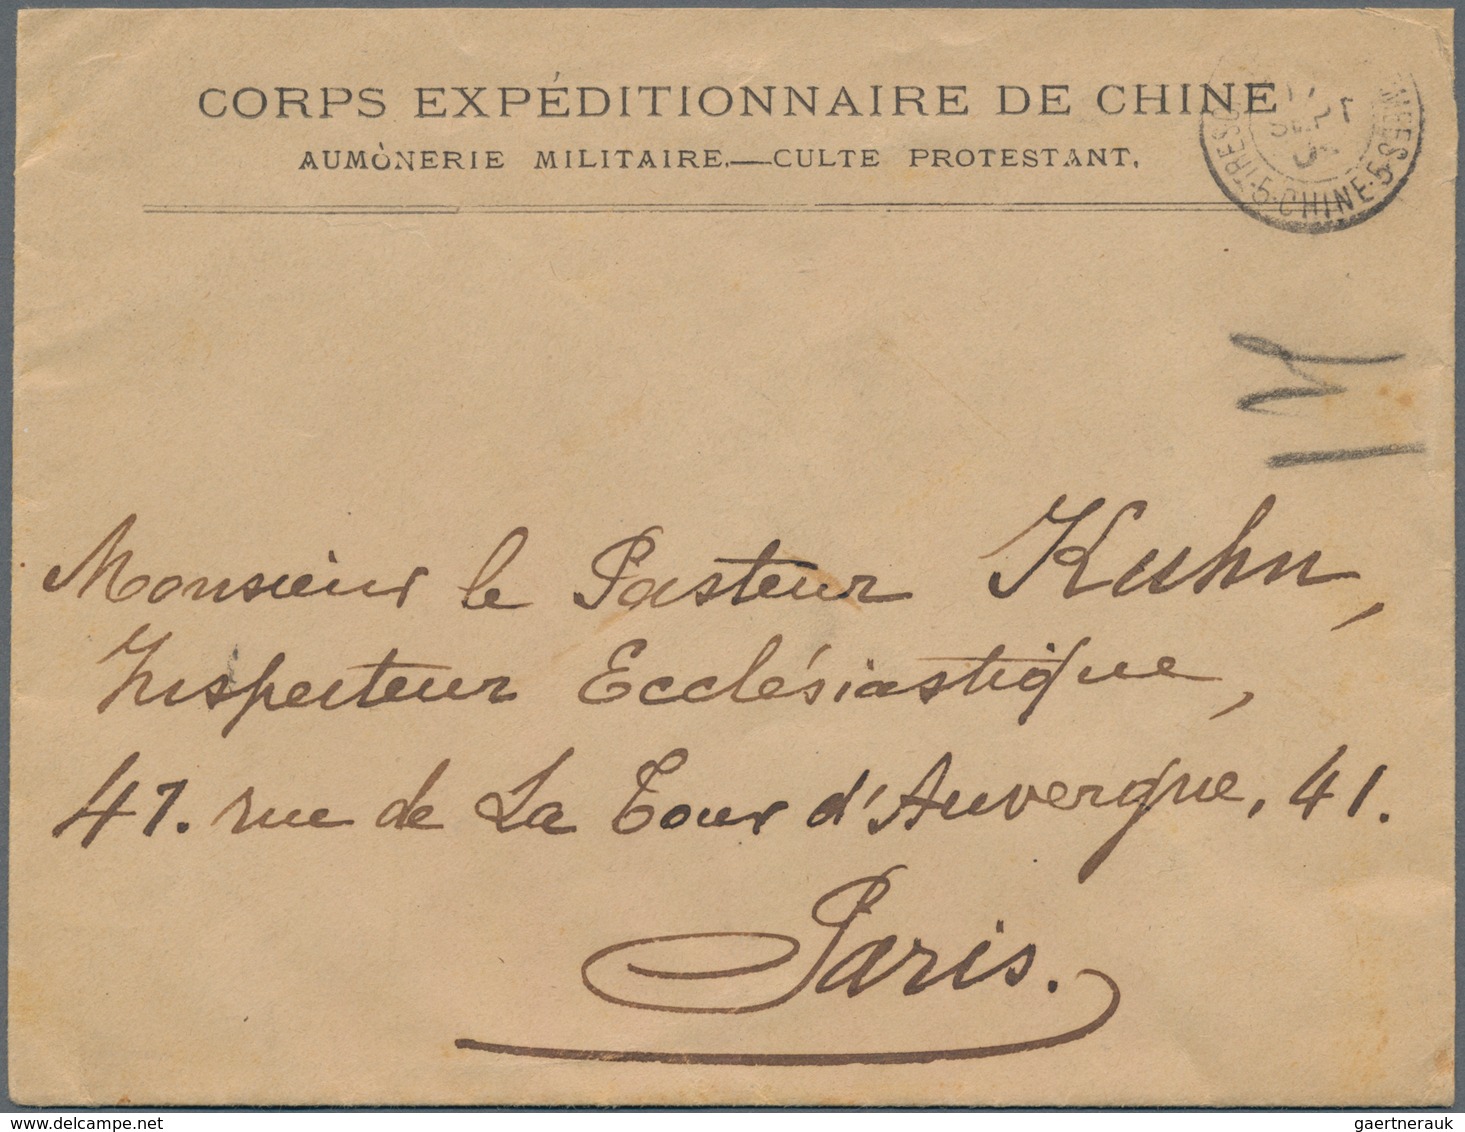 CORPS EXPÉDITIONNAIRE DE CHINE
AUMÒNERIE MILITAIRE.—CULTE PROTESTANT.
5·CHINE·5
Monsieur le Pasteur Kuhn,
Inspecteur Ecclésiastique,
41. rue de La Tour d'Auvergne, 41.
Paris.
delcampe.net
gaertnerauk